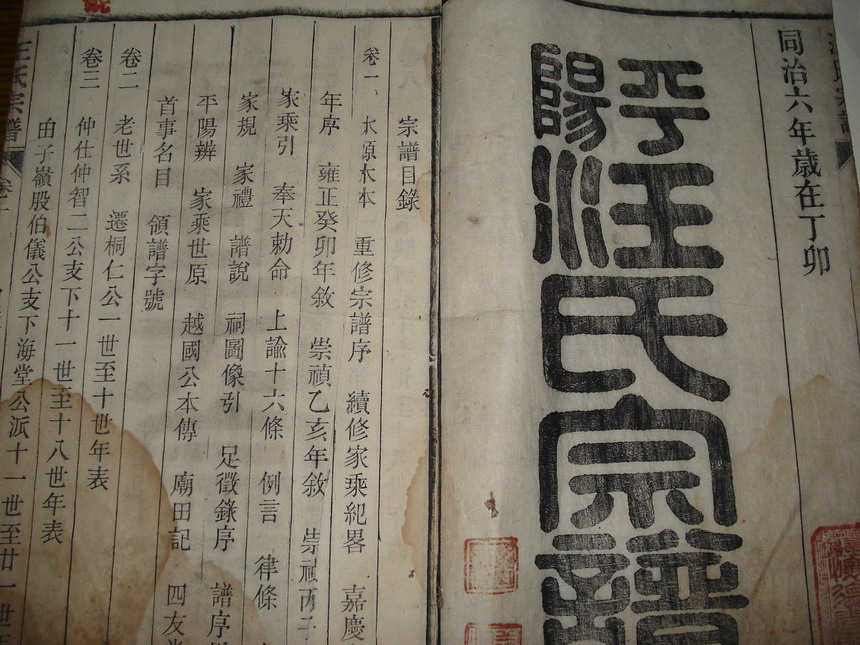 同治六年歲在丁卯
平陽汪氏宗譜
宗譜目錄
卷一 木原水本 重修宗譜序 續修家乘紀畧 嘉慶
年序 雍正癸卯年敘 崇禎乙亥年敘 崇禎丙子
家乘引 奉天勅命 上諭十六條 例言 律條
家規 家禮 譜說 祠圖像引 足徵錄序 譜序
平陽辨 家乘世原 越國公本傳 廟田記 四友
首事名目 領譜字號
卷二 老世系 遷桐仁公一世至十世年表
卷三 仲仕仲智二公支下十一世至十八世年表
由子嶺股伯儀公支下海堂公派十一世至廿一世
汪氏宗譜